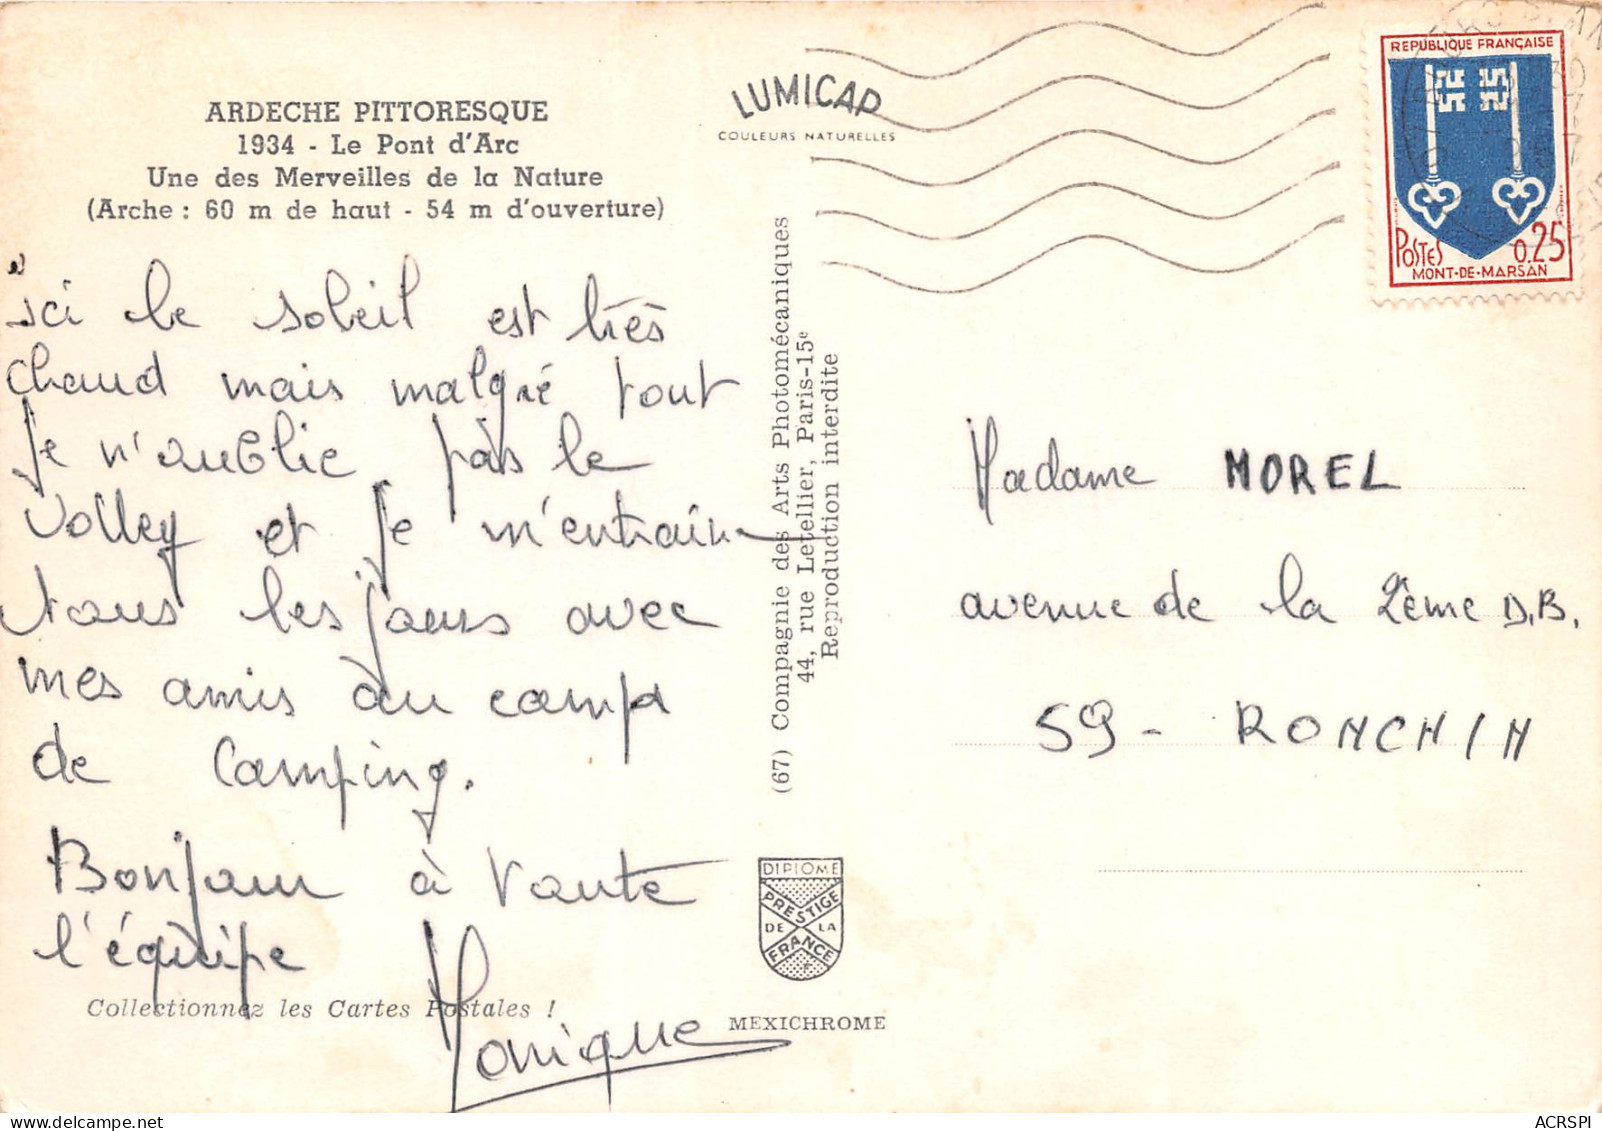 ARDECHE PITTORESQUE
1934 - Le Pont d'Arc
Une des Merveilles de la Nature
(Arche : 60 m de haut - 54 m d'ouverture)
ici le soleil est très
chaud mais malgré tout
je n'oublie pas le
volley et je m'entraîne
tous les jours avec
mes amis au camp
de camping.
Bonjour à toute
l'équipe
Monique
Collectionnez les Cartes Postales !
LUMICAP
COULEURS NATURELLES
(67) Compagnie des Arts Photomécaniques
44, rue Letellier, Paris-15e
Reproduction interdite
DIPLOME
PRESTIGE
DE LA
FRANCE
MEXICHROME
REPUBLIQUE FRANÇAISE
POSTES 0,25
MONT-DE-MARSAN
Madame MOREL
avenue de la 2ème D.B.
59 - RONCHIN
ACRSPI